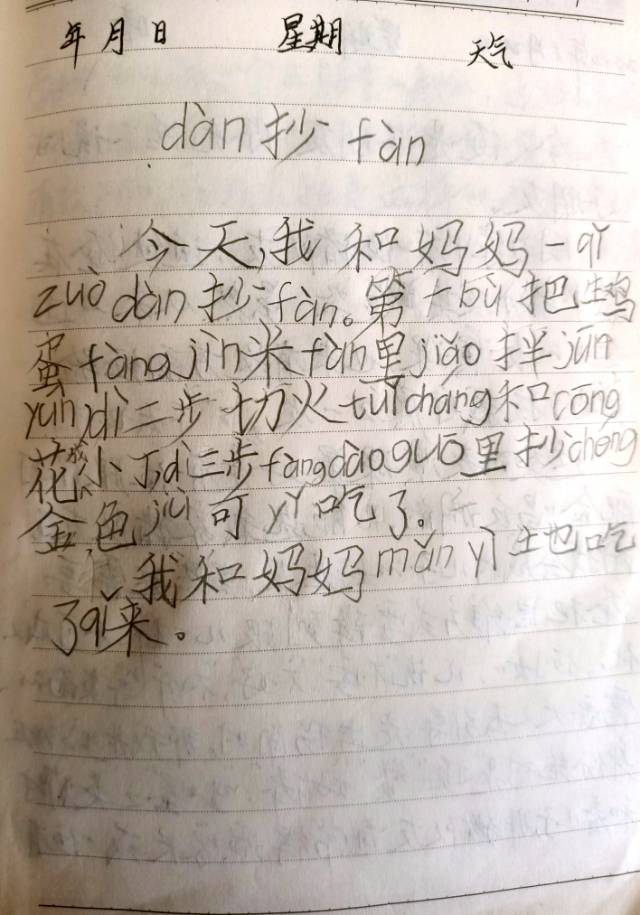 年 月 日 星期 天气
dàn 抄 fàn
今天,我和妈妈一qǐ
zuò dàn 抄 fàn。第一bù 把鸡
蛋 fàng jìn 米 fàn 里 jiǎo 拌 jūn
yún,dì 二步 切火 tuǐ cháng 和 cōng
花成小丁,dì 三步 fàng dào guō 里 抄 chéng
金色 jiù 可 yǐ 吃了。
我和妈妈 mǎn yì 地吃
了 qǐ 来。